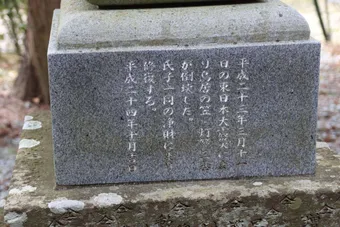 平成二十三年三月十一
日の東日本大震災によ
り鳥居の笠、灯篭
が倒壊した。
氏子一同の浄財により
修復する。
平成二十四年十月十日